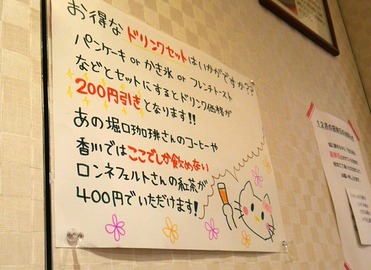 お得なドリンクセットはいかがですか??
パンケーキorかき氷orフレンチトースト
などとセットにするとドリンク価格が
200円引きとなります!!
あの堀口珈琲さんのコーヒーや
香川ではここでしか飲めない
ロンネフェルトさんの紅茶が
400円でいただけます!